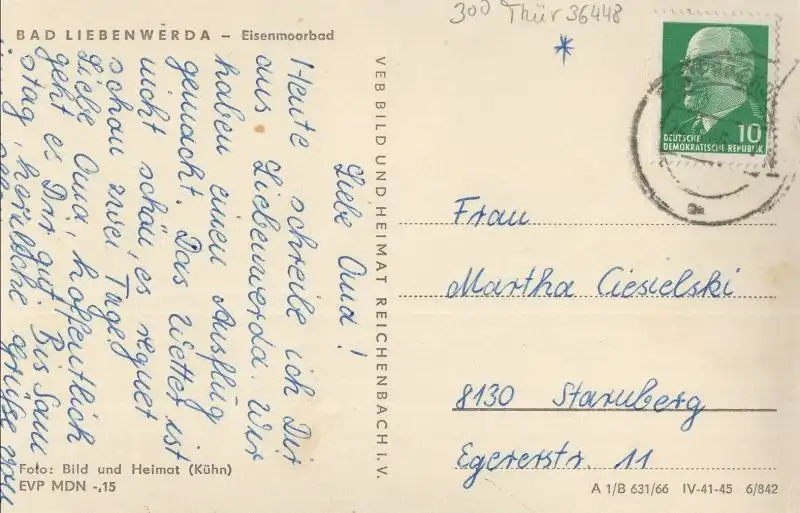 300 Thür 36448
BAD LIEBENWERDA – Eisenmoorbad
DEUTSCHE
DEMOKRATISCHE REPUBLIK
10
Liebe Oma!
Heute schreibe ich Dir
aus Liebenwerda. Wir
haben einen Ausflug
gemacht. Das Wetter ist
nicht schön, es regnet
schon zwei Tage.
Liebe Oma, hoffentlich
geht es Dir gut. Bis Sam
stag, herzliche Grüße von
VEB BILD UND HEIMAT REICHENBACH i. V.
Frau
Martha Ciesielski
8130 Starnberg
Egererstr. 11
Foto: Bild und Heimat (Kühn)
EVP MDN -,15
A 1/B 631/66 IV-41-45 6/842